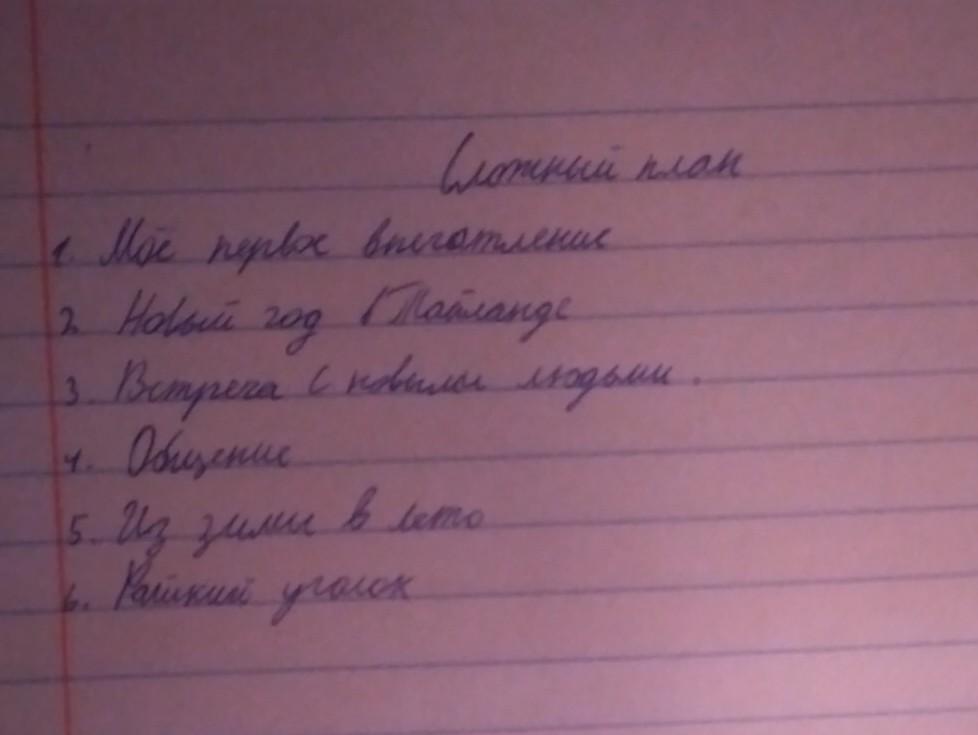 Сложный план
1. Моё первое впечатление
2. Новый год в Тайланде
3. Встреча с новыми людьми.
4. Общение
5. Из зимы в лето
6. Райский уголок